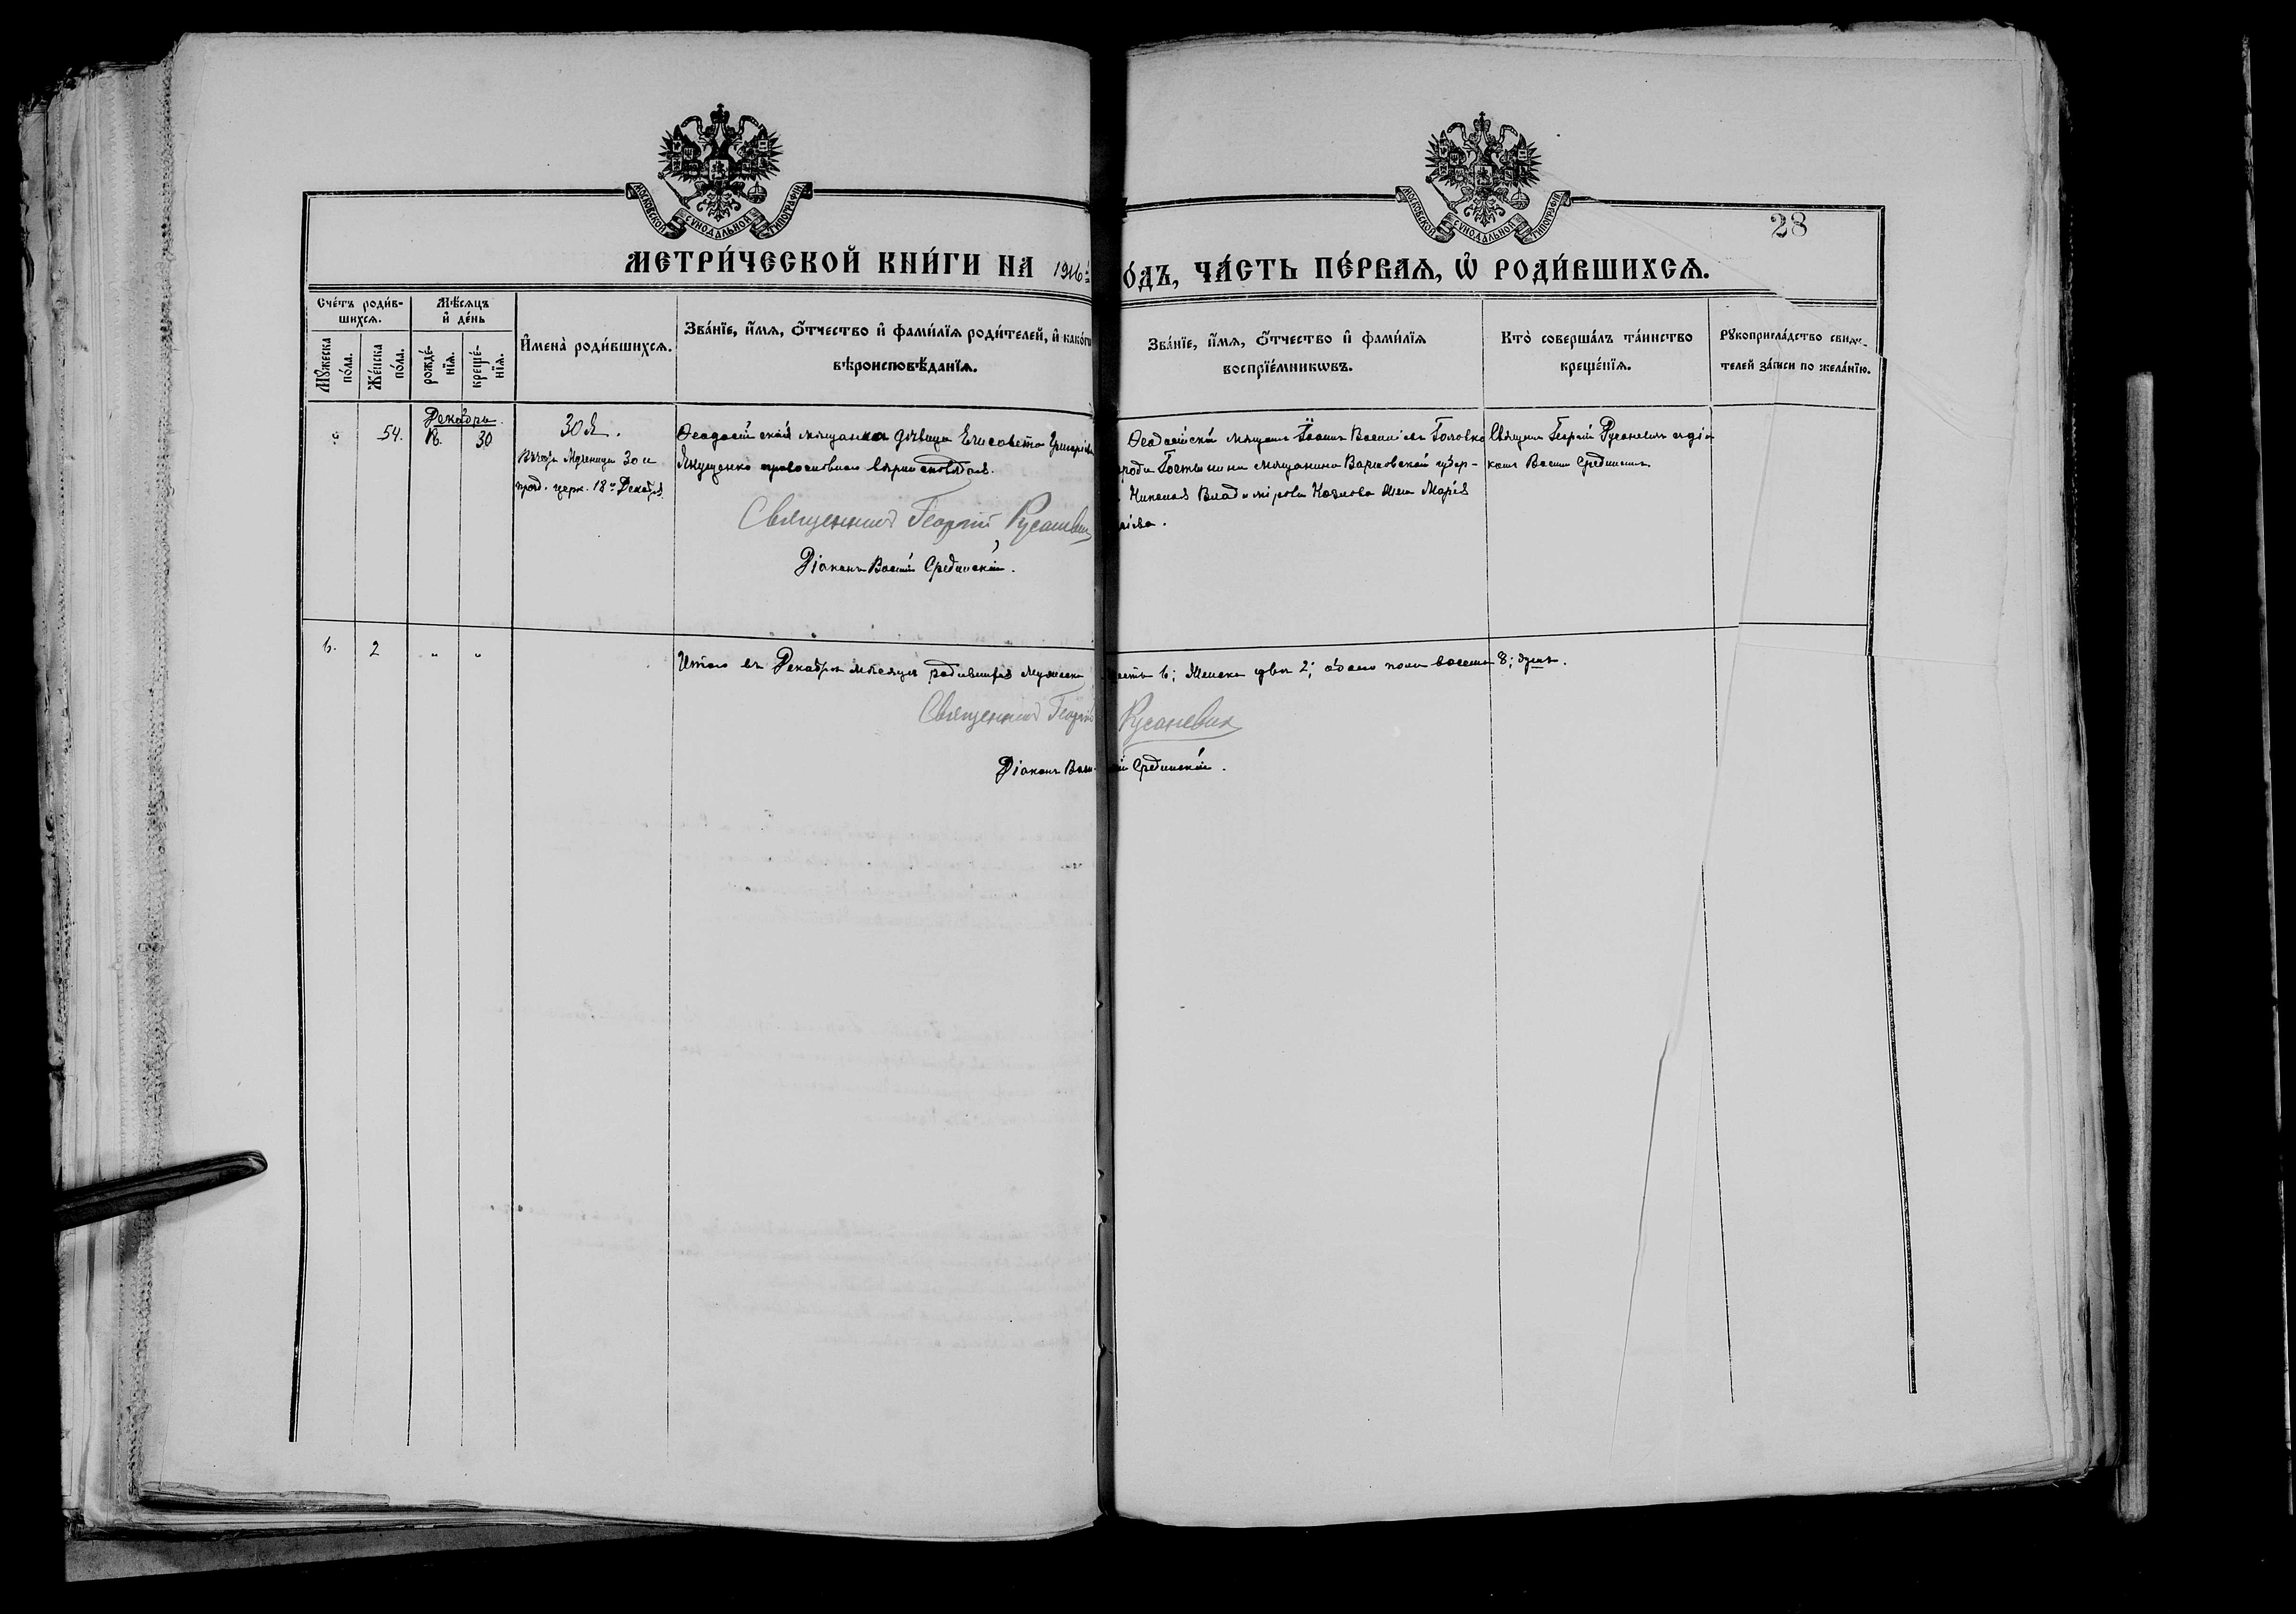 МОСКОВСКОЙ СУНОДАЛЬНОЙ ТИПОГРАФІИ
МОСКОВСКОЙ СУНОДАЛЬНОЙ ТИПОГРАФІИ
28
МЕТРИ́ЧЕСКОЙ КНИ́ГИ НА 1916 г
О́ДЪ, ЧА́СТЬ ПЕ́РВАѦ, Ѡ҆ РОДИ́ВШИХСѦ.
Сче́тъ роди́в-
шихсѧ.
Мꙋ́жеска
по́ла.
Же́нска
по́ла.
Мѣ́сѧцъ
и҆ де́нь
рожде́-
нїѧ.
креще́-
нїѧ.
И҆мена̀ роди́вшихсѧ.
Зва́нїе, и҆́мѧ, ѻ҆́тчество и҆ фами́лїѧ роди́телей, и҆ како́гѡ
вѣроисповѣ́данїѧ.
Зва́нїе, и҆́мѧ, ѻ҆́тчество и҆ фами́лїѧ
воспрїе́мникѡвъ.
Кто̀ соверша́лъ та́инство
креще́нїѧ.
Рꙋкоприкла́дство свидѣ-
телей за́писи по жела́нїю.
Декабрь
" 54. 18. 30
Зоя.
Въ честь Мученицы Зои
празд. церк. 18го Декабря.
Ѳеодосійская мѣщанка дѣвица Елисавета Григоріева
Якущенко православнаго вѣроисповѣданія.
Священникъ Георгій Русаневичъ
Діаконъ Василій Срединскій.
Ѳеодосійскій мѣщанинъ Іоаннъ Васильевъ Головко
города Гостынина мѣщанина Варшовской губер-
Николая Владимірова Козлова жена Марія
Священникъ Георгій Русаневичъ съ діа-
кономъ Василіемъ Срединскимъ.
6. 2 " "
Итого въ Декабрѣ мѣсяцѣ родившихся Мужеска
шесть 6; Женска двѣ 2; обоего пола восемь 8; душъ.
Священникъ Георгій Русаневичъ
Діаконъ Василій Срединскій.